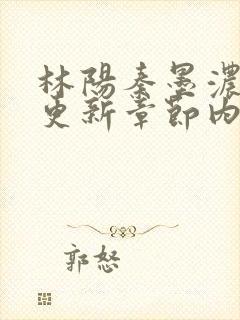 林陽秦墨濃
更新章節內
郭怒